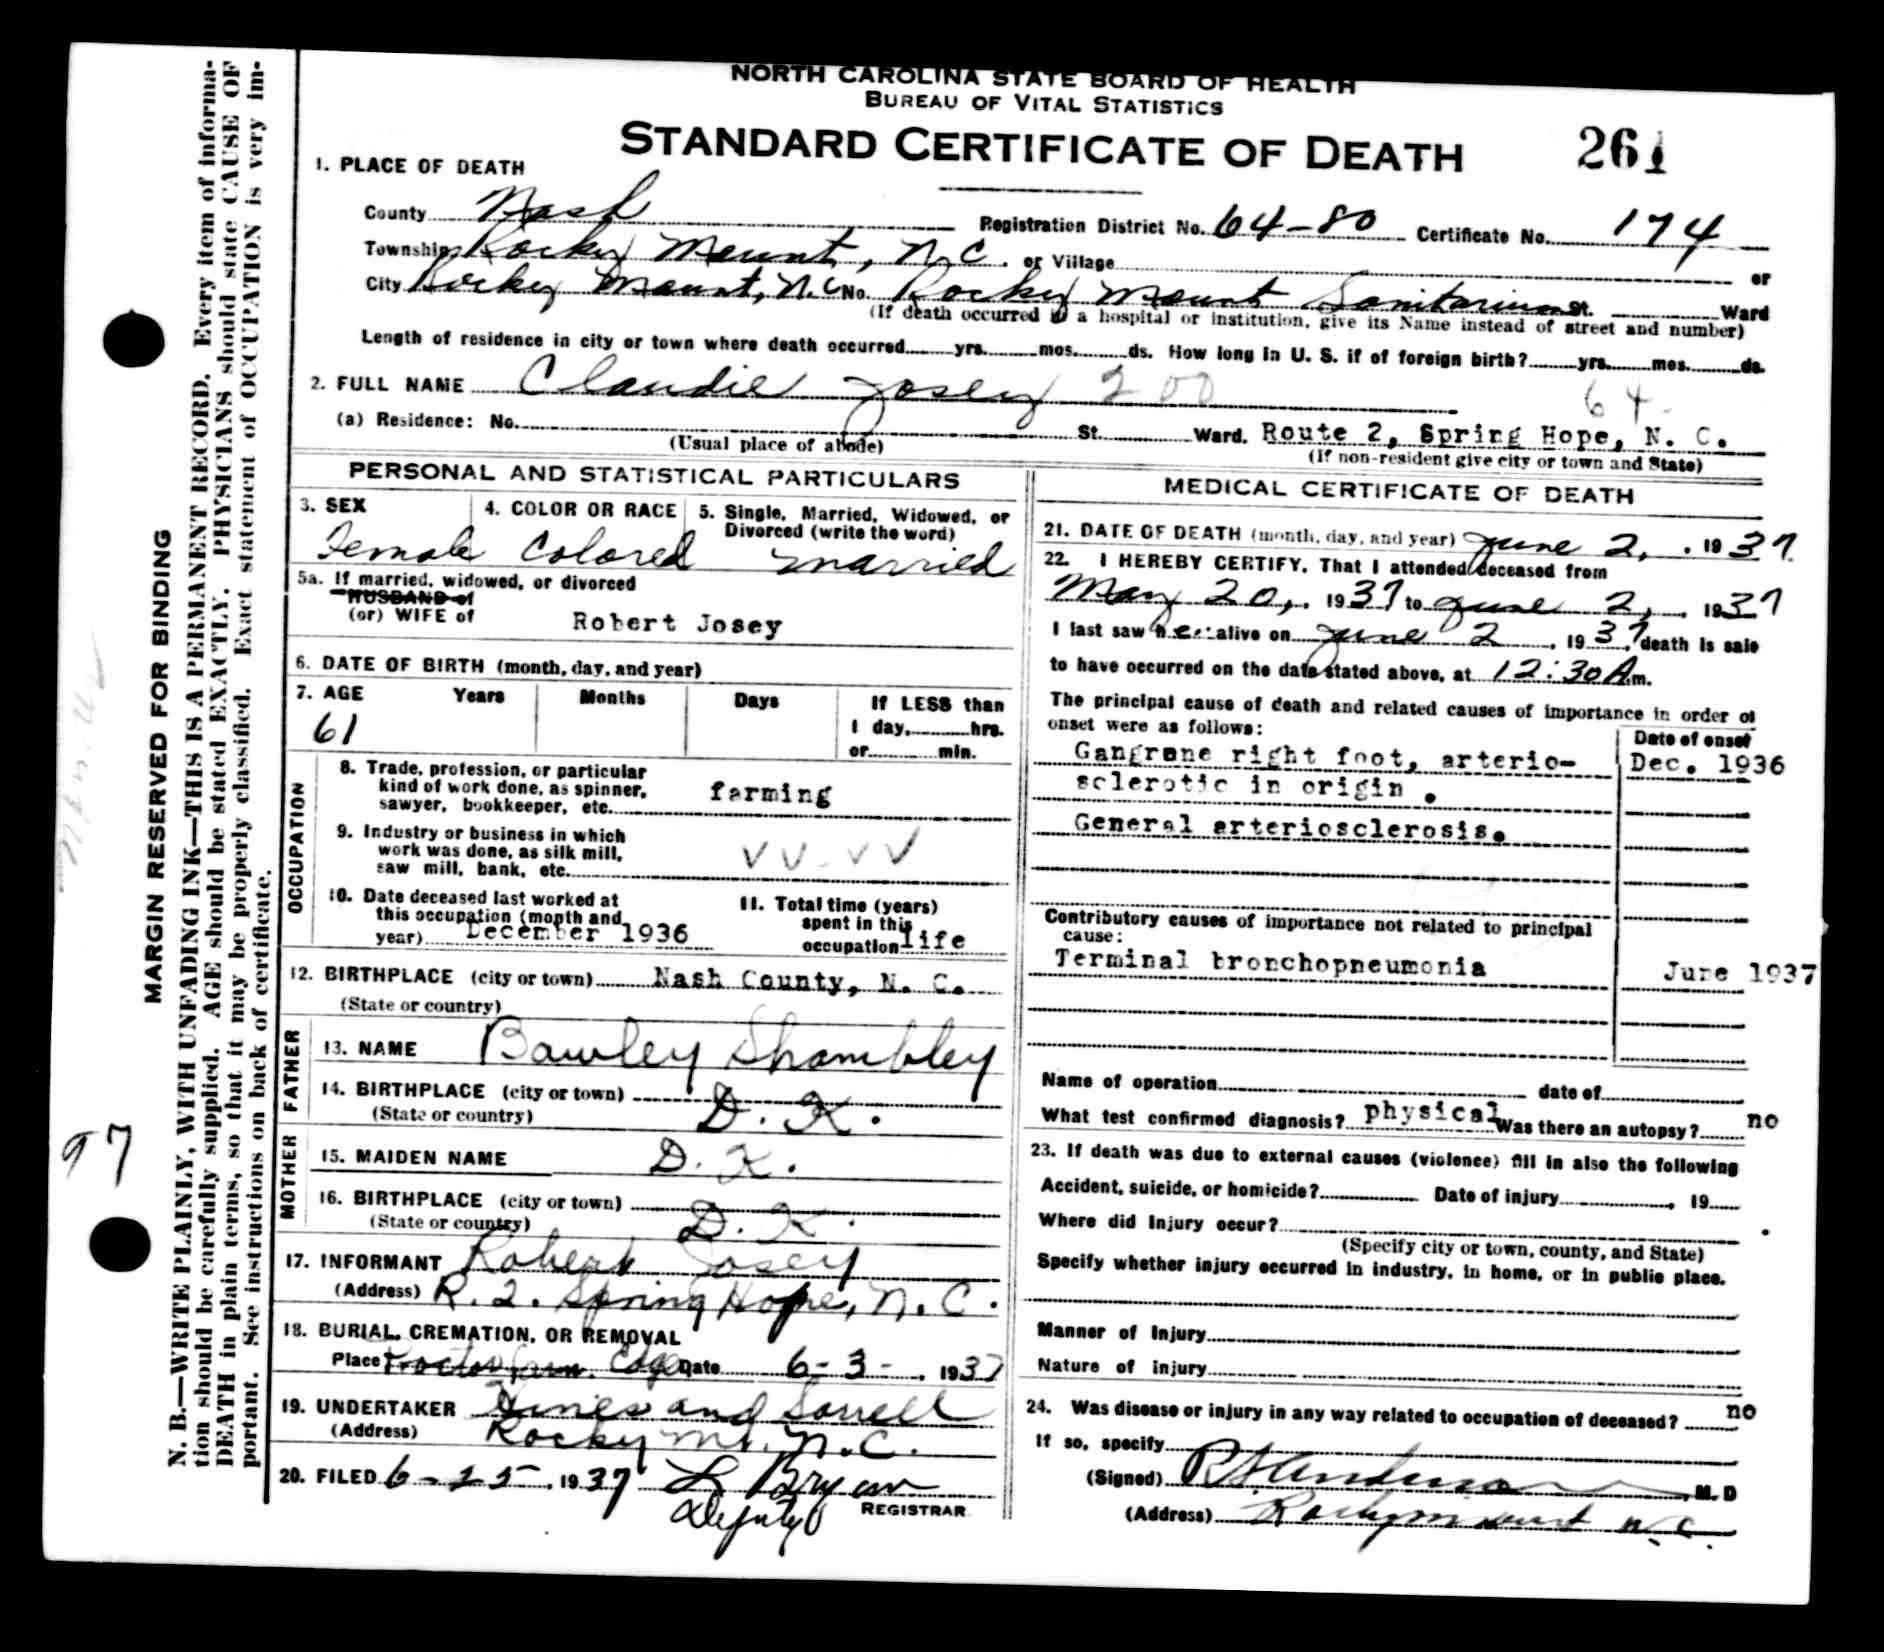 NORTH CAROLINA STATE BOARD OF HEALTH
BUREAU OF VITAL STATISTICS
STANDARD CERTIFICATE OF DEATH
261
1. PLACE OF DEATH
County Nash Registration District No. 64-80 Certificate No. 174
Township Rocky Mount, N.C. or Village or
City Rocky Mount, N.C. No. Rocky Mount Sanitarium St. Ward
(If death occurred in a hospital or institution, give its Name instead of street and number)
Length of residence in city or town where death occurred yrs. mos. ds. How long in U. S. if of foreign birth? yrs. mos. ds.
2. FULL NAME Claudie Josey 200 64
(a) Residence: No. St. Ward. Route 2, Spring Hope, N. C.
(Usual place of abode) (If non-resident give city or town and State)
PERSONAL AND STATISTICAL PARTICULARS
3. SEX 4. COLOR OR RACE 5. Single, Married, Widowed, or
Divorced (write the word)
Female Colored married
5a. If married, widowed, or divorced
HUSBAND of
(or) WIFE of Robert Josey
6. DATE OF BIRTH (month, day, and year)
7. AGE Years Months Days If LESS than
61 1 day, hrs.
or min.
OCCUPATION
8. Trade, profession, or particular
kind of work done, as spinner,
sawyer, bookkeeper, etc. farming
9. Industry or business in which
work was done, as silk mill,
saw mill, bank, etc. VV-VV
10. Date deceased last worked at
this occupation (month and
year) December 1936
11. Total time (years)
spent in this
occupation life
12. BIRTHPLACE (city or town) Nash County, N. C.
(State or country)
FATHER
13. NAME Bawley Shambley
14. BIRTHPLACE (city or town) D. K.
(State or country)
MOTHER
15. MAIDEN NAME D. K.
16. BIRTHPLACE (city or town) D. K.
(State or country)
17. INFORMANT Robert Josey
(Address) R. 2. Spring Hope, N. C.
18. BURIAL, CREMATION, OR REMOVAL
Place Proctor farm. Edge Date 6-3-, 1937
19. UNDERTAKER Hines and Sorrell
(Address) Rocky Mt. N.C.
20. FILED 6-25, 1937 L Bryan
Deputy REGISTRAR
MEDICAL CERTIFICATE OF DEATH
21. DATE OF DEATH (month, day, and year) June 2, 1937.
22. I HEREBY CERTIFY, That I attended deceased from
May 20, 1937 to June 2, 1937
I last saw her alive on June 2, 1937, death is said
to have occurred on the date stated above, at 12:30 A m.
The principal cause of death and related causes of importance in order of
onset were as follows:
Date of onset
Gangrene right foot, arterio- Dec. 1936
sclerotic in origin.
General arteriosclerosis.
Contributory causes of importance not related to principal
cause:
Terminal bronchopneumonia June 1937
Name of operation date of
What test confirmed diagnosis? physical Was there an autopsy? no
23. If death was due to external causes (violence) fill in also the following
Accident, suicide, or homicide? Date of injury , 19
Where did injury occur?
(Specify city or town, county, and State)
Specify whether injury occurred in industry, in home, or in public place.
Manner of Injury
Nature of injury
24. Was disease or injury in any way related to occupation of deceased? no
If so, specify
(Signed) R. S. Anderson, M. D
(Address) Rocky Mount N. C.
MARGIN RESERVED FOR BINDING
N. B.—WRITE PLAINLY, WITH UNFADING INK—THIS IS A PERMANENT RECORD. Every item of informa-
tion should be carefully supplied. AGE should be stated EXACTLY. PHYSICIANS should state CAUSE OF
DEATH in plain terms, so that it may be properly classified. Exact statement of OCCUPATION is very im-
portant. See instructions on back of certificate.
97